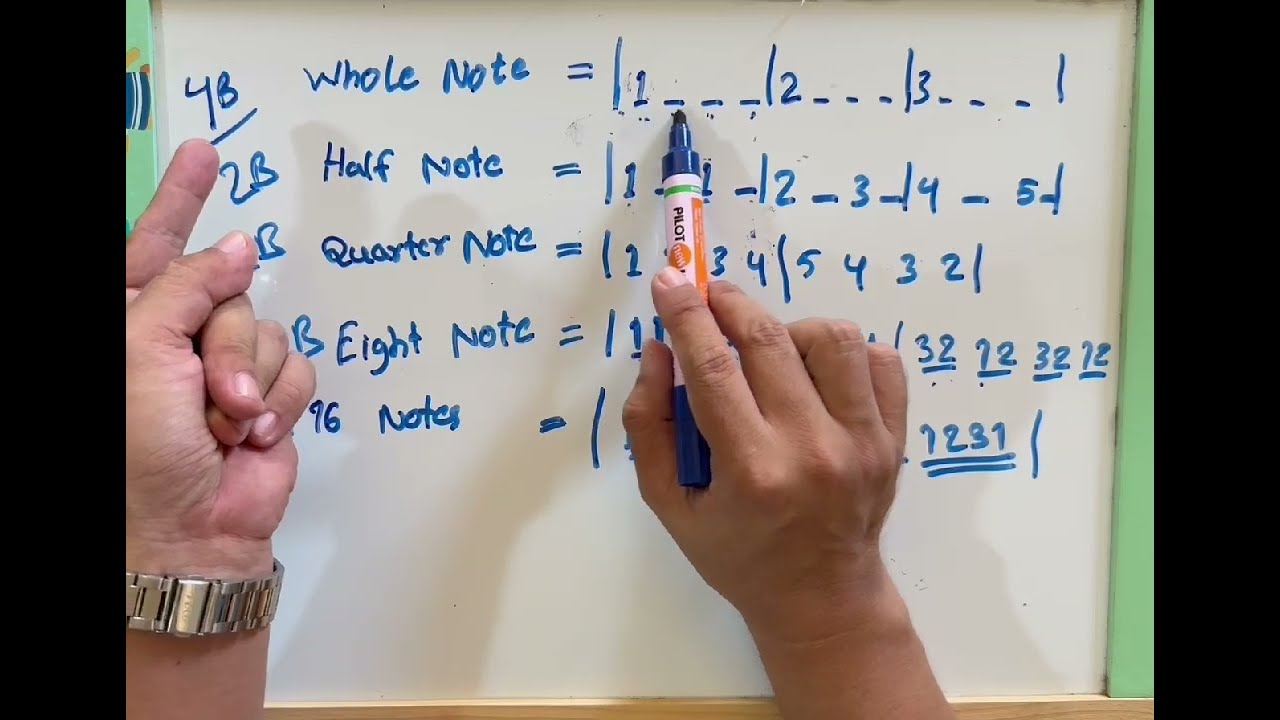 4B Whole Note = |1 _ _ _|2 _ _ _|3 _ _ _ |
2B Half Note = |1 _ 1 _|2 _ 3 _|4 _ 5 _|
B Quarter Note = |1 3 4|5 4 3 2|
B Eight Note = |1 | 32 12 32 12
16 Notes = | 1231 |
PILOT